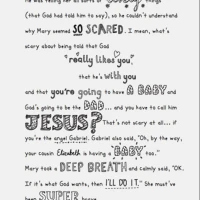 He was telling her all sorts of things
(that God had told him to say), so he couldn't understand
why Mary seemed SO SCARED. I mean, what's
scary about being told that God
"really likes you",
that he's with you
and that you're going to have A BABY and
God's going to be the DAD... and you have to call him
JESUS? That's not scary at all... if
you're the angel Gabriel. Gabriel also said, "Oh, by the way,
your cousin Elizabeth is having a BABY too."
Mary took a DEEP BREATH and calmly said, "OK.
If it's what God wants, then I'LL DO IT." She must've
been SUPER brave